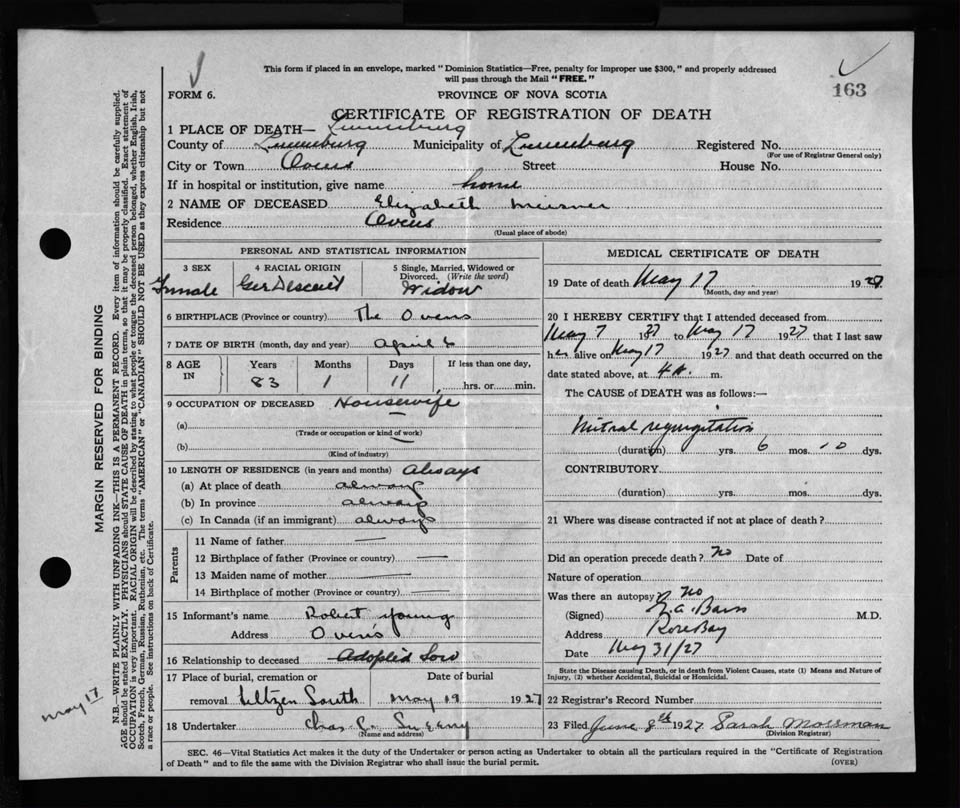 This form if placed in an envelope, marked "Dominion Statistics—Free, penalty for improper use $300," and properly addressed
will pass through the Mail "FREE."
163
FORM 6.
PROVINCE OF NOVA SCOTIA
CERTIFICATE OF REGISTRATION OF DEATH
1 PLACE OF DEATH— Lunenburg
County of Lunenburg Municipality of Lunenburg Registered No.
(For use of Registrar General only)
City or Town Ovens Street House No.
If in hospital or institution, give name home
2 NAME OF DECEASED Elizabeth Meisner
Residence Ovens
(Usual place of abode)
PERSONAL AND STATISTICAL INFORMATION
3 SEX
Female
4 RACIAL ORIGIN
Ger Descent
5 Single, Married, Widowed or
Divorced. (Write the word)
Widow
6 BIRTHPLACE (Province or country) The Ovens
7 DATE OF BIRTH (month, day and year) April 6
8 AGE IN
Years Months Days If less than one day,
83 1 11 hrs. or min.
9 OCCUPATION OF DECEASED Housewife
(a)
(Trade or occupation or kind of work)
(b)
(Kind of industry)
10 LENGTH OF RESIDENCE (in years and months) Always
(a) At place of death always
(b) In province always
(c) In Canada (if an immigrant) always
Parents
11 Name of father —
12 Birthplace of father (Province or country) —
13 Maiden name of mother —
14 Birthplace of mother (Province or country) —
15 Informant's name Robert Young
Address Ovens
16 Relationship to deceased Adopted Son
17 Place of burial, cremation or Date of burial
removal Feltzen South May 19 1927
18 Undertaker Chas
(Name and address)
MEDICAL CERTIFICATE OF DEATH
19 Date of death May 17 1927
(Month, day and year)
20 I HEREBY CERTIFY that I attended deceased from
May 7 27 to May 17 1927 that I last saw
her alive on May 17 1927 and that death occurred on the
date stated above, at 4 A. m.
The CAUSE of DEATH was as follows:—
Mitral regurgitation
(duration) yrs. 6 mos. 10 dys.
CONTRIBUTORY
(duration) yrs. mos. dys.
21 Where was disease contracted if not at place of death?
Did an operation precede death? No Date of
Nature of operation
Was there an autopsy? No
(Signed) M.D.
Address Rose Bay
Date May 31/27
State the Disease causing Death, or in death from Violent Causes, state (1) Means and Nature of
Injury, (2) whether Accidental, Suicidal or Homicidal.
22 Registrar's Record Number
23 Filed June 8th 1927 Sarah Mossman
(Division Registrar)
SEC. 46—Vital Statistics Act makes it the duty of the Undertaker or person acting as Undertaker to obtain all the particulars required in the "Certificate of Registration
of Death" and to file the same with the Division Registrar who shall issue the burial permit. (OVER)
MARGIN RESERVED FOR BINDING
N.B.—WRITE PLAINLY WITH UNFADING INK—THIS IS A PERMANENT RECORD. Every item of information should be carefully supplied.
AGE should be stated EXACTLY. PHYSICIANS should STATE CAUSE OF DEATH in plain terms, so that it may be properly classified. Exact statement of
OCCUPATION is very important. RACIAL ORIGIN will be described by stating to what people or tongue the deceased person belonged, whether English, Irish,
Scotch, French, German, Russian, Ruthenian, etc. The terms "AMERICAN" or "CANADIAN" SHOULD NOT BE USED as they express citizenship but not
a race or people. See instructions on back of Certificate.
May 17